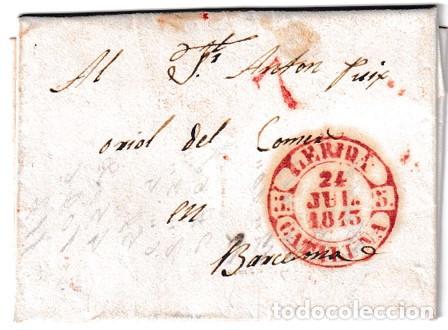 Al Sr. Anton Puix
oriol del Comers
en
Barcelona
LERIDA
24
JUL.
1843
CATALUÑA
todocoleccion
todocoleccion.net